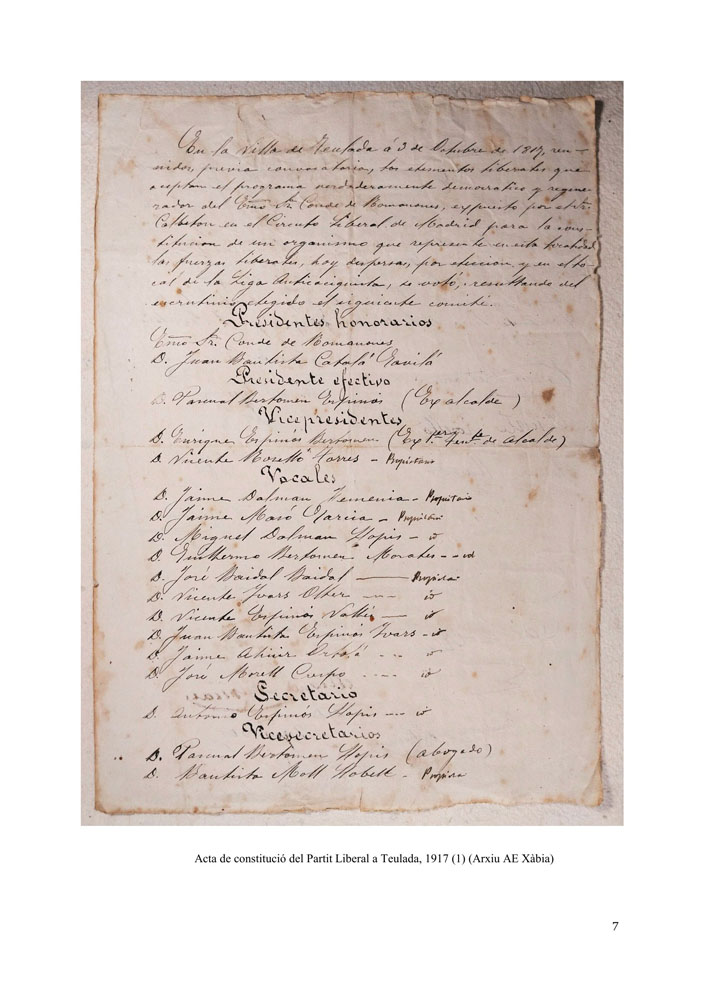 En la Villa de Teulada á 3 de Octubre de 1917, reu-
nidos, previa convocatoria, los elementos liberales que
aceptan el programa verdaderamente democratico y regene-
rador del Exmo Sr. Conde de Romanones, expuesto por el Sr.
Calbeton en el Circulo Liberal de Madrid para la cons-
titucion de un organismo que represente en esta localidad
las fuerzas liberales, hoy dispersas, por eleccion, y en el lo-
cal de la Liga Anticaciquista, se votó, resultando del
escrutinio elegido el siguiente comité.
Presidentes honorarios
Exmo Sr. Conde de Romanones
D. Juan Bautista Catalá Gavilá
Presidente efectivo
D. Pascual Bertomeu Espinós (Ex alcalde)
Vicepresidentes
D. Enrique Espinós Bertomeu (Ex 1er Tente de alcalde)
D. Vicente Morelló Torres - Propietario
Vocales
D. Jaime Dalmau Femenia - Propietario
D. Jaime Masó Garcia - Propietario
D. Miguel Dalmau Llopis - id
D. Guillermo Bertomeu Morales - - id
D. José Baidal Baidal —
D. Vicente Ivars Oller - - - id
D. Vicente Espinós Vallés — id
D. Juan Bautista Espinós Ivars - id
D. Jaime Ortolá - - - id
D. José Morell Crespo - - - - id
Secretario
D. Antonio Espinós Llopis - - - id
Vicesecretarios
D. Pascual Bertomeu Llopis (abogado)
D. Bautista Moll Llobell -
Acta de constitució del Partit Liberal a Teulada, 1917 (1) (Arxiu AE Xàbia)
7